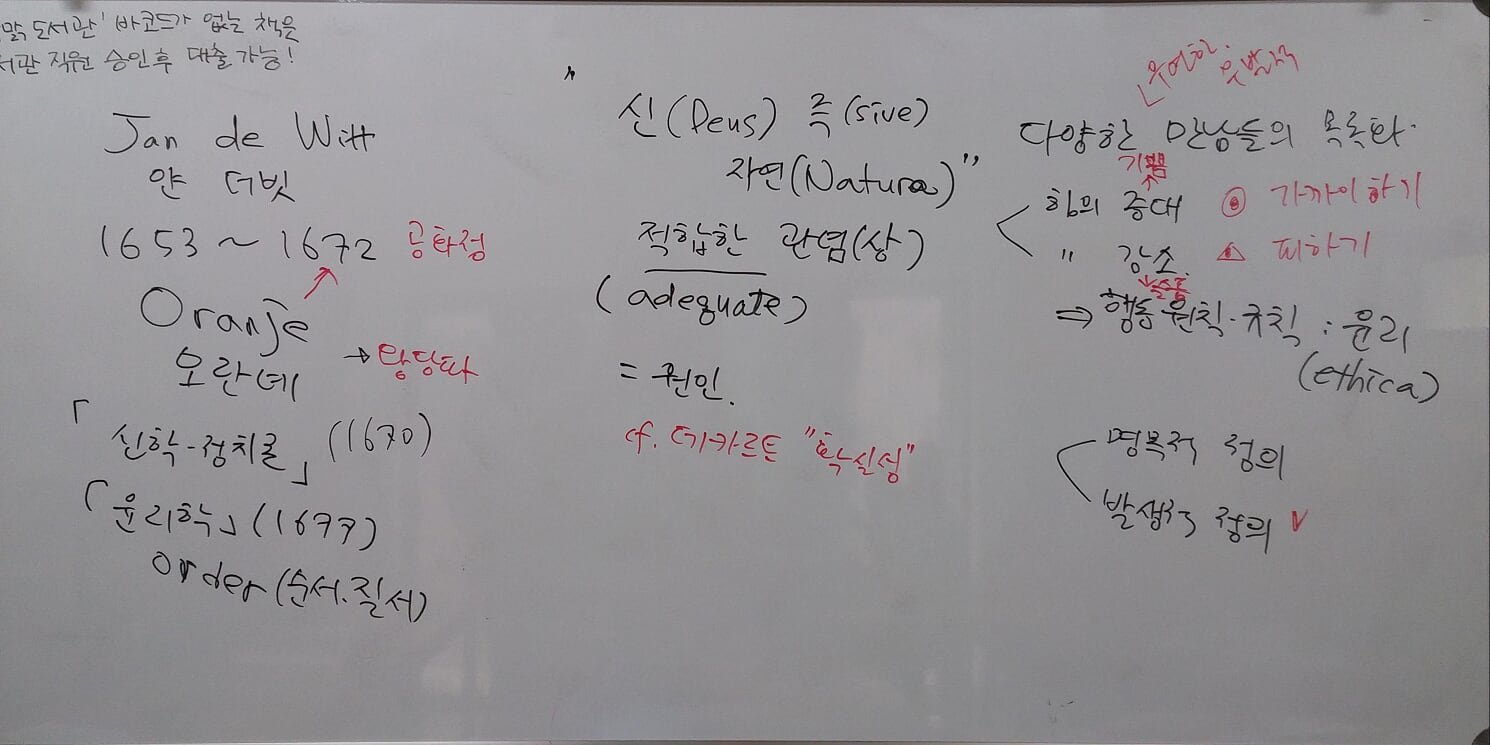 맑 도서관' 바코드가 없는 책은
서관 직원 승인후 대출가능!
Jan de Witt
얀 더빗
1653 ~ 1672 공화정
Oranje
오란데 → 왕당파
「신학-정치론」 (1670)
「윤리학」 (1677)
order (순서.질서)
"신(Deus) 즉(sive)
자연(Natura)"
적합한 관념(상)
(adequate)
= 원인.
cf. 데카르트 "확실성"
우연한. 우발적
다양한 만남들의 목록화.
기쁨
힘의 증대 ◎ 가까이하기
" 감소. △ 피하기
↓슬픔
⇒ 행동 원칙·규칙 : 윤리
(ethica)
명목적 정의
발생적 정의 V